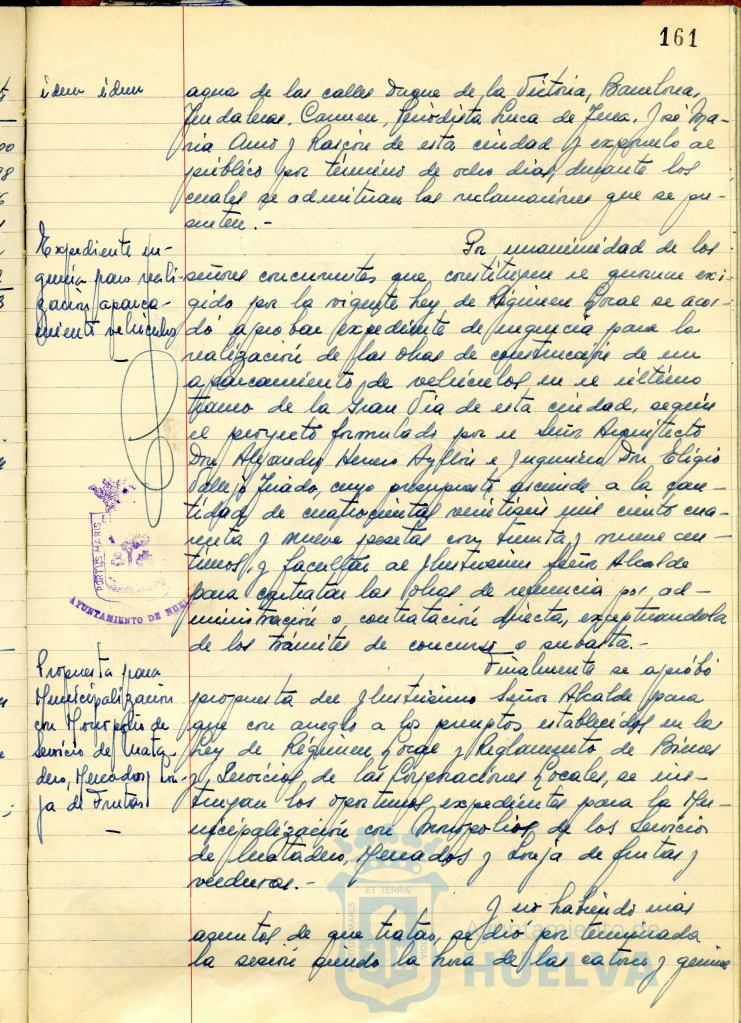 161
idem idem
agua de las calles Duque de la Victoria, Barcelona,
Carmen, Periodista Luca de Tena, José Ma-
ria Amo y Rascón de esta ciudad y exponerlo al
público por término de ocho dias, durante los
cuales se admitiran las reclamaciones que se pre-
senten.-
Expediente ur-
gencia para reali-
zación aparca-
miento vehículos
Por unanimidad de los
señores concurrentes que constituyen el quorum exi-
gido por la vigente Ley de Régimen Local se acor-
dó aprovar expediente de urgencia para la
realización de las obras de construcción de un
aparcamiento de vehículos en el último
tramo de la Gran Via de esta ciudad, según
el proyecto formulado por el Señor Arquitecto
Don Alejandro Herrero Ayllón e Ingeniero Don Eligio
Valle y Jurado, cuyo presupuesto asciende a la can-
tidad de cuatrocientas veintiseis mil ciento cua-
renta y nueve pesetas con treinta y nueve cen-
timos, y facultar al Ilustrisimo Señor Alcalde
para contratar las obras de referencia por ad-
ministración o contratación directa, exceptuandola
de los trámites de concurso o subasta.-
PORTUS MARIS
AYUNTAMIENTO DE HUEL
Propuesta para
Municipalización
con Monopolio de
servicio de Mata-
dero, Mercados y Lon-
ja de Frutas
Finalmente se aprobó
propuesta del Ilustrisimo Señor Alcalde para
que con arreglo a los preceptos establecidos en la
Ley de Régimen Local y Reglamento de Bienes
y Servicios de las Corporaciones Locales, se ins-
truyan los oportunos expedientes para la Mu-
nicipalización con monopolios de los Servicios
de Matadero, Mercados y Lonja de frutas y
verduras.-
Y no habiendo más
asuntos de que tratar, se dio por terminada
la sesión siendo la hora de las catorce y quince
ET TERRAE
Ayuntamiento de
HUELVA